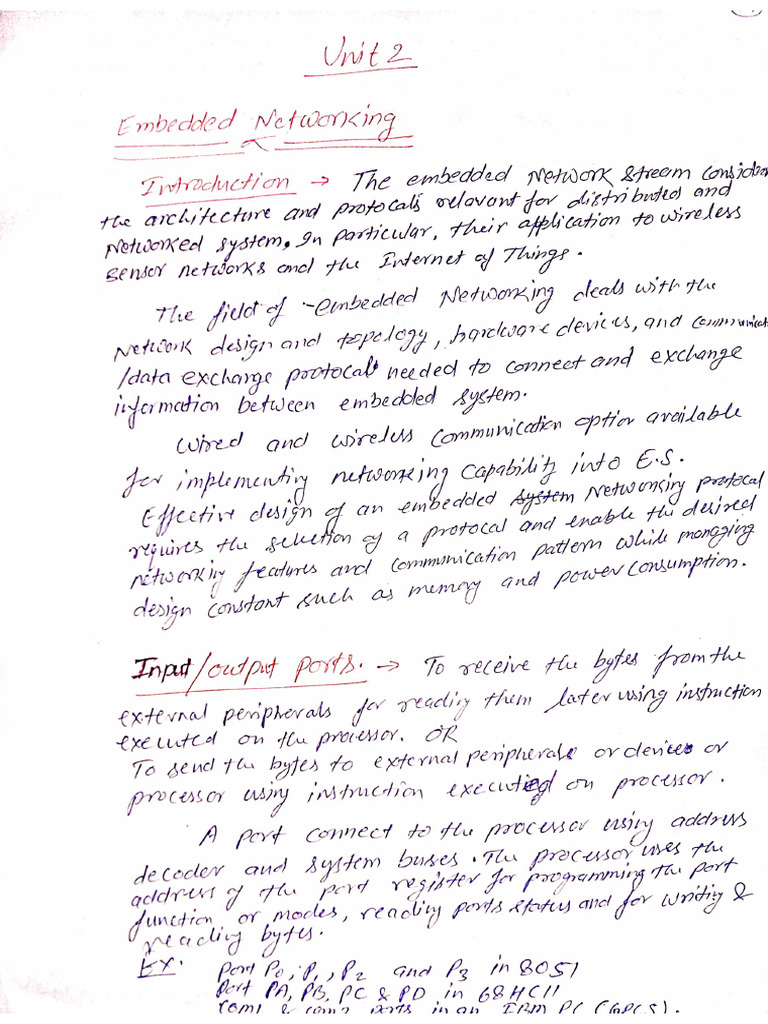 Unit 2
Embedded Networking
Introduction → The embedded Network Stream consider
the architecture and protocals relavant for distributed and
Networked system. In particular, their application to wireless
sensor networks and the Internet of Things.
The field of embedded Networking deals with the
Network design and topology, hardware devices, and communicati
/data exchange protocal needed to connect and exchange
information between embedded system.
Wired and wireless communication option available
for implementing networking capability into E.S.
Effective design of an embedded system Networking protocal
requires the selection of a protocal and enable the desired
networking features and communication pattern while managing
design constant such as memory and power consumption.
Input/output ports. → To receive the bytes from the
external peripherals for reading them later using instruction
executed on the processor. OR
To send the bytes to external peripherals or devices or
processor using instruction executed on processor.
A port connect to the processor using address
decoder and system buses. The processor uses the
address of the port register for programming the port
function or modes, reading ports status and for writing &
reading bytes.
Ex. Port P0, P1, P2 and P3 in 8051
Port PA, PB, PC & PD in 68HC11
COM1 & COM2 ports in an IBM PC